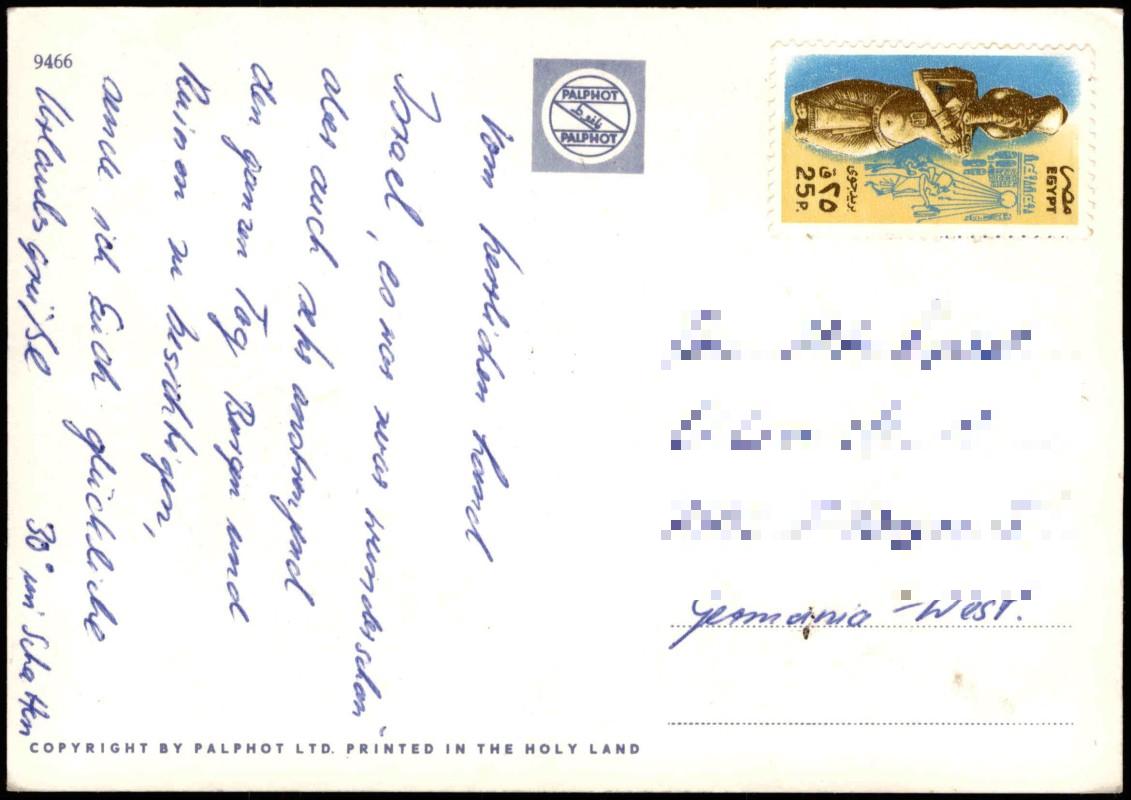 9466
Vom herrlichen Land
Israel, es war zwar wunderschön
aber auch sehr anstrengend
den ganzen Tag Burgen und
Ruinen zu besichtigen,
ich Euch glückliche
Urlaubsgrüße
30° im Schatten
PALPHOT
PALPHOT
مصر
EGYPT
بريد جوى
٢٥
25 P.
Germania - West.
COPYRIGHT BY PALPHOT LTD. PRINTED IN THE HOLY LAND